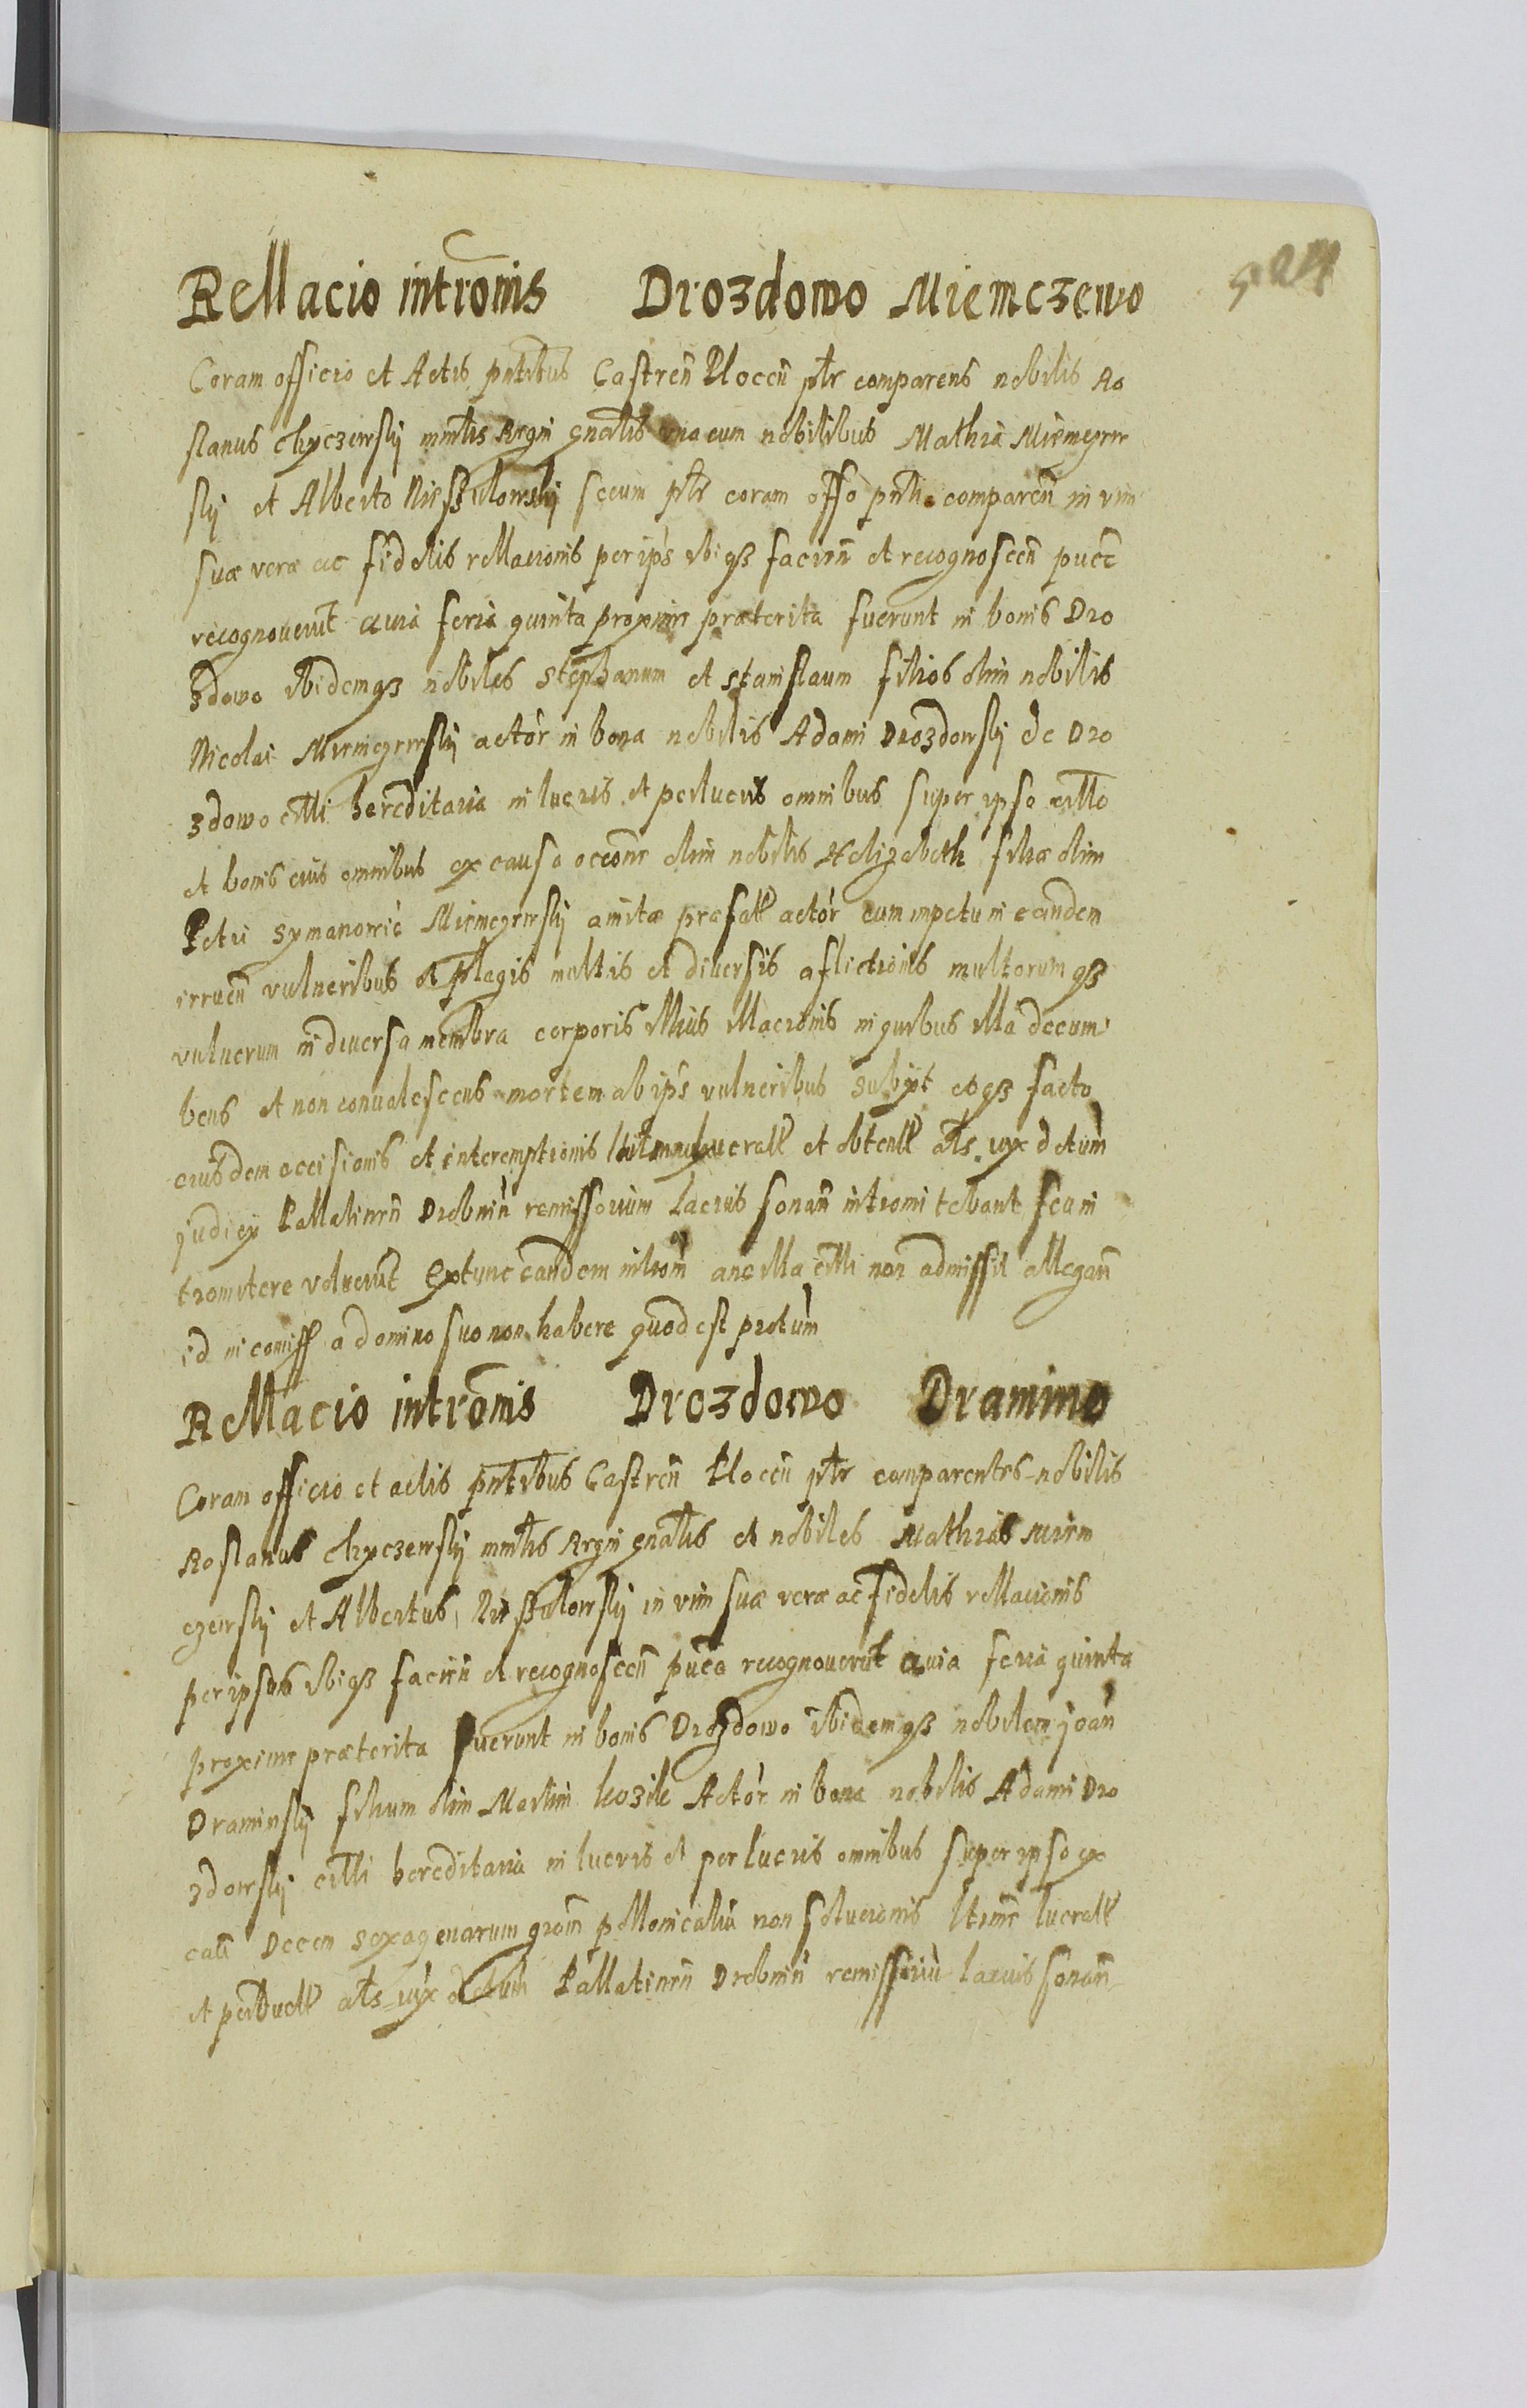 Rellacio intromis Drozdowo Miemczewo
524
Coram officio et Actis pntibus Castren Plocen ptr comparens nobilis Ro
slanus Chyczewsky mntis Regni gnalis vna cum nobilibus Mathia Miemczew
sky et Alberto Niszulowsky secum ptr coram offo pnti comparen in vim
suæ veræ ac fidelis rellacionis per ips vbiq3 facien et recognoscen
recognouerut feria quinta proxime præterita fuerunt in bonis Dro
zdowo ibidemq3 nobiles Stephanum et Stanislaum filios olim nobilis
Nicolai Miemczewsky actor in bona nobilis Adami Drozdowsky de Dro
zdowo hereditaria in lucris et perlucris omnibus super ipso
et bonis eius omnibus ex causa olim nobilis Helizabeth filiæ olim
Petri Symanowic Miemczewsky amitæ præfatt actor cum impetu in eandem
irruen vulneribus et plagis multis et diuersis aflictionis multorumq3
vulnerum in diuersa membra corporis illius illacionis in quibus illa decum
bens et non conualescens mortem ab ips vulneribus subyt eoq3 facto
eiusdem occisionis et interemptionis lucratt et obtentt als
judicy Pallatinen Drobnin remissorium Lacius sonan intromitebant seu in
tromitere voluerut Extunc eandem introm ancilla non admissit allegan
id in comiss a domino suo non habere quod est
Rellacio intromis Drozdowo Dramino
Coram officio et actis pntibus Castren Plocen ptr comparentes nobilis
Roslanus Chyczewsky mntis Regni gnalis et nobiles Mathias Miem
czewsky et Albertus Niszulowsky in vim suæ veræ ac fidelis rellacionis
per ipsos vbiq3 facien et recognoscen recognouerut feria quinta
proxime præterita fuerunt in bonis Drozdowo ibidemq3 nobilem joan
Draminsky filium olim Martini Kozik Actor in bona nobilis Adami Dro
zdowsky hereditaria in lucris et perlucris omnibus super ipso ex
Decem sexagenarum pollonicaliu non solucionis lucratt
et als Pallatinen Drobnin remissoriu lacius sonan